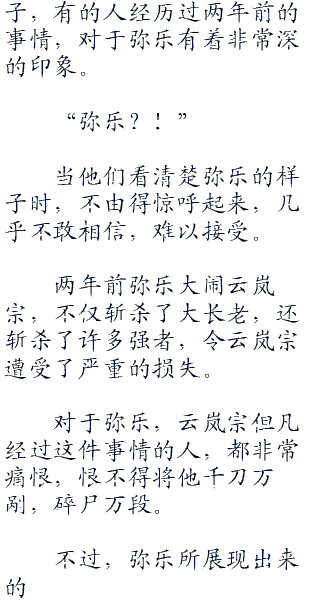 子，有的人经历过两年前的
事情，对于弥乐有着非常深
的印象。
“弥乐？！”
当他们看清楚弥乐的样
子时，不由得惊呼起来，几
乎不敢相信，难以接受。
两年前弥乐大闹云岚
宗，不仅斩杀了大长老，还
斩杀了许多强者，令云岚宗
遭受了严重的损失。
对于弥乐，云岚宗但凡
经过这件事情的人，都非常
痛恨，恨不得将他千刀万
剐，碎尸万段。
不过，弥乐所展现出来
的